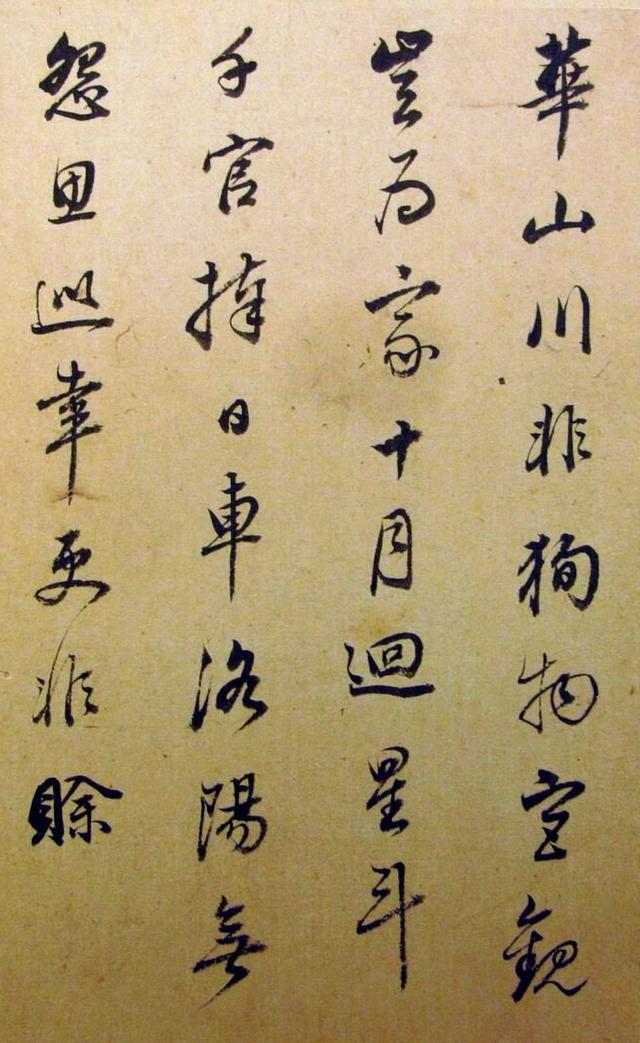 華山川非徇物宮觀
豈為家十月迴星斗
千官捧日車洛陽無
怨思巡幸更非賒